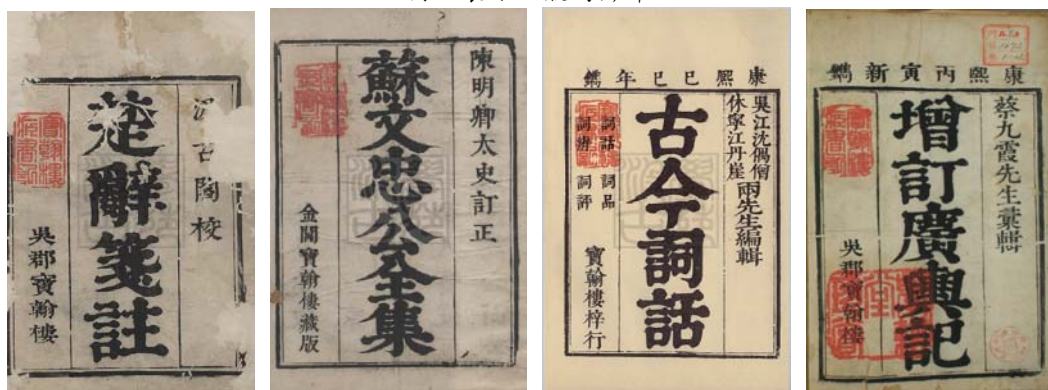 古閣校
楚辭箋註
吳郡寶翰樓
陳明卿太史訂正
蘇文忠公全集
金閶寶翰樓藏版
康熙己巳年鐫
吳江沈偶僧
休寧江丹崖
兩先生編輯
古今詞話
詞話 詞品
詞辨 詞評
寶翰樓梓行
康熙丙寅新鐫
蔡九霞先生彙輯
增訂廣輿記
吳郡寶翰樓